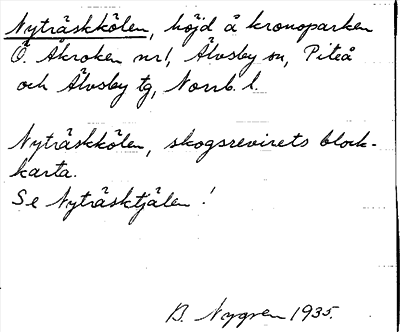 Nyträskkölen, höjd å kronoparken
Ö. Åkroken nr1, Älvsby sn, Piteå
och Älvsby tg, Norrb. l.
Nyträskkölen, skogsrevirets block-
karta.
Se Nyträsktjälen!
B. Nygren 1935.